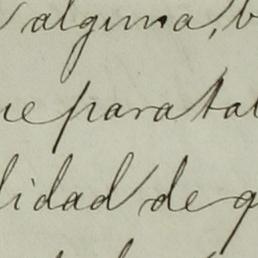 alguna, b
ue para tal
lidad de q